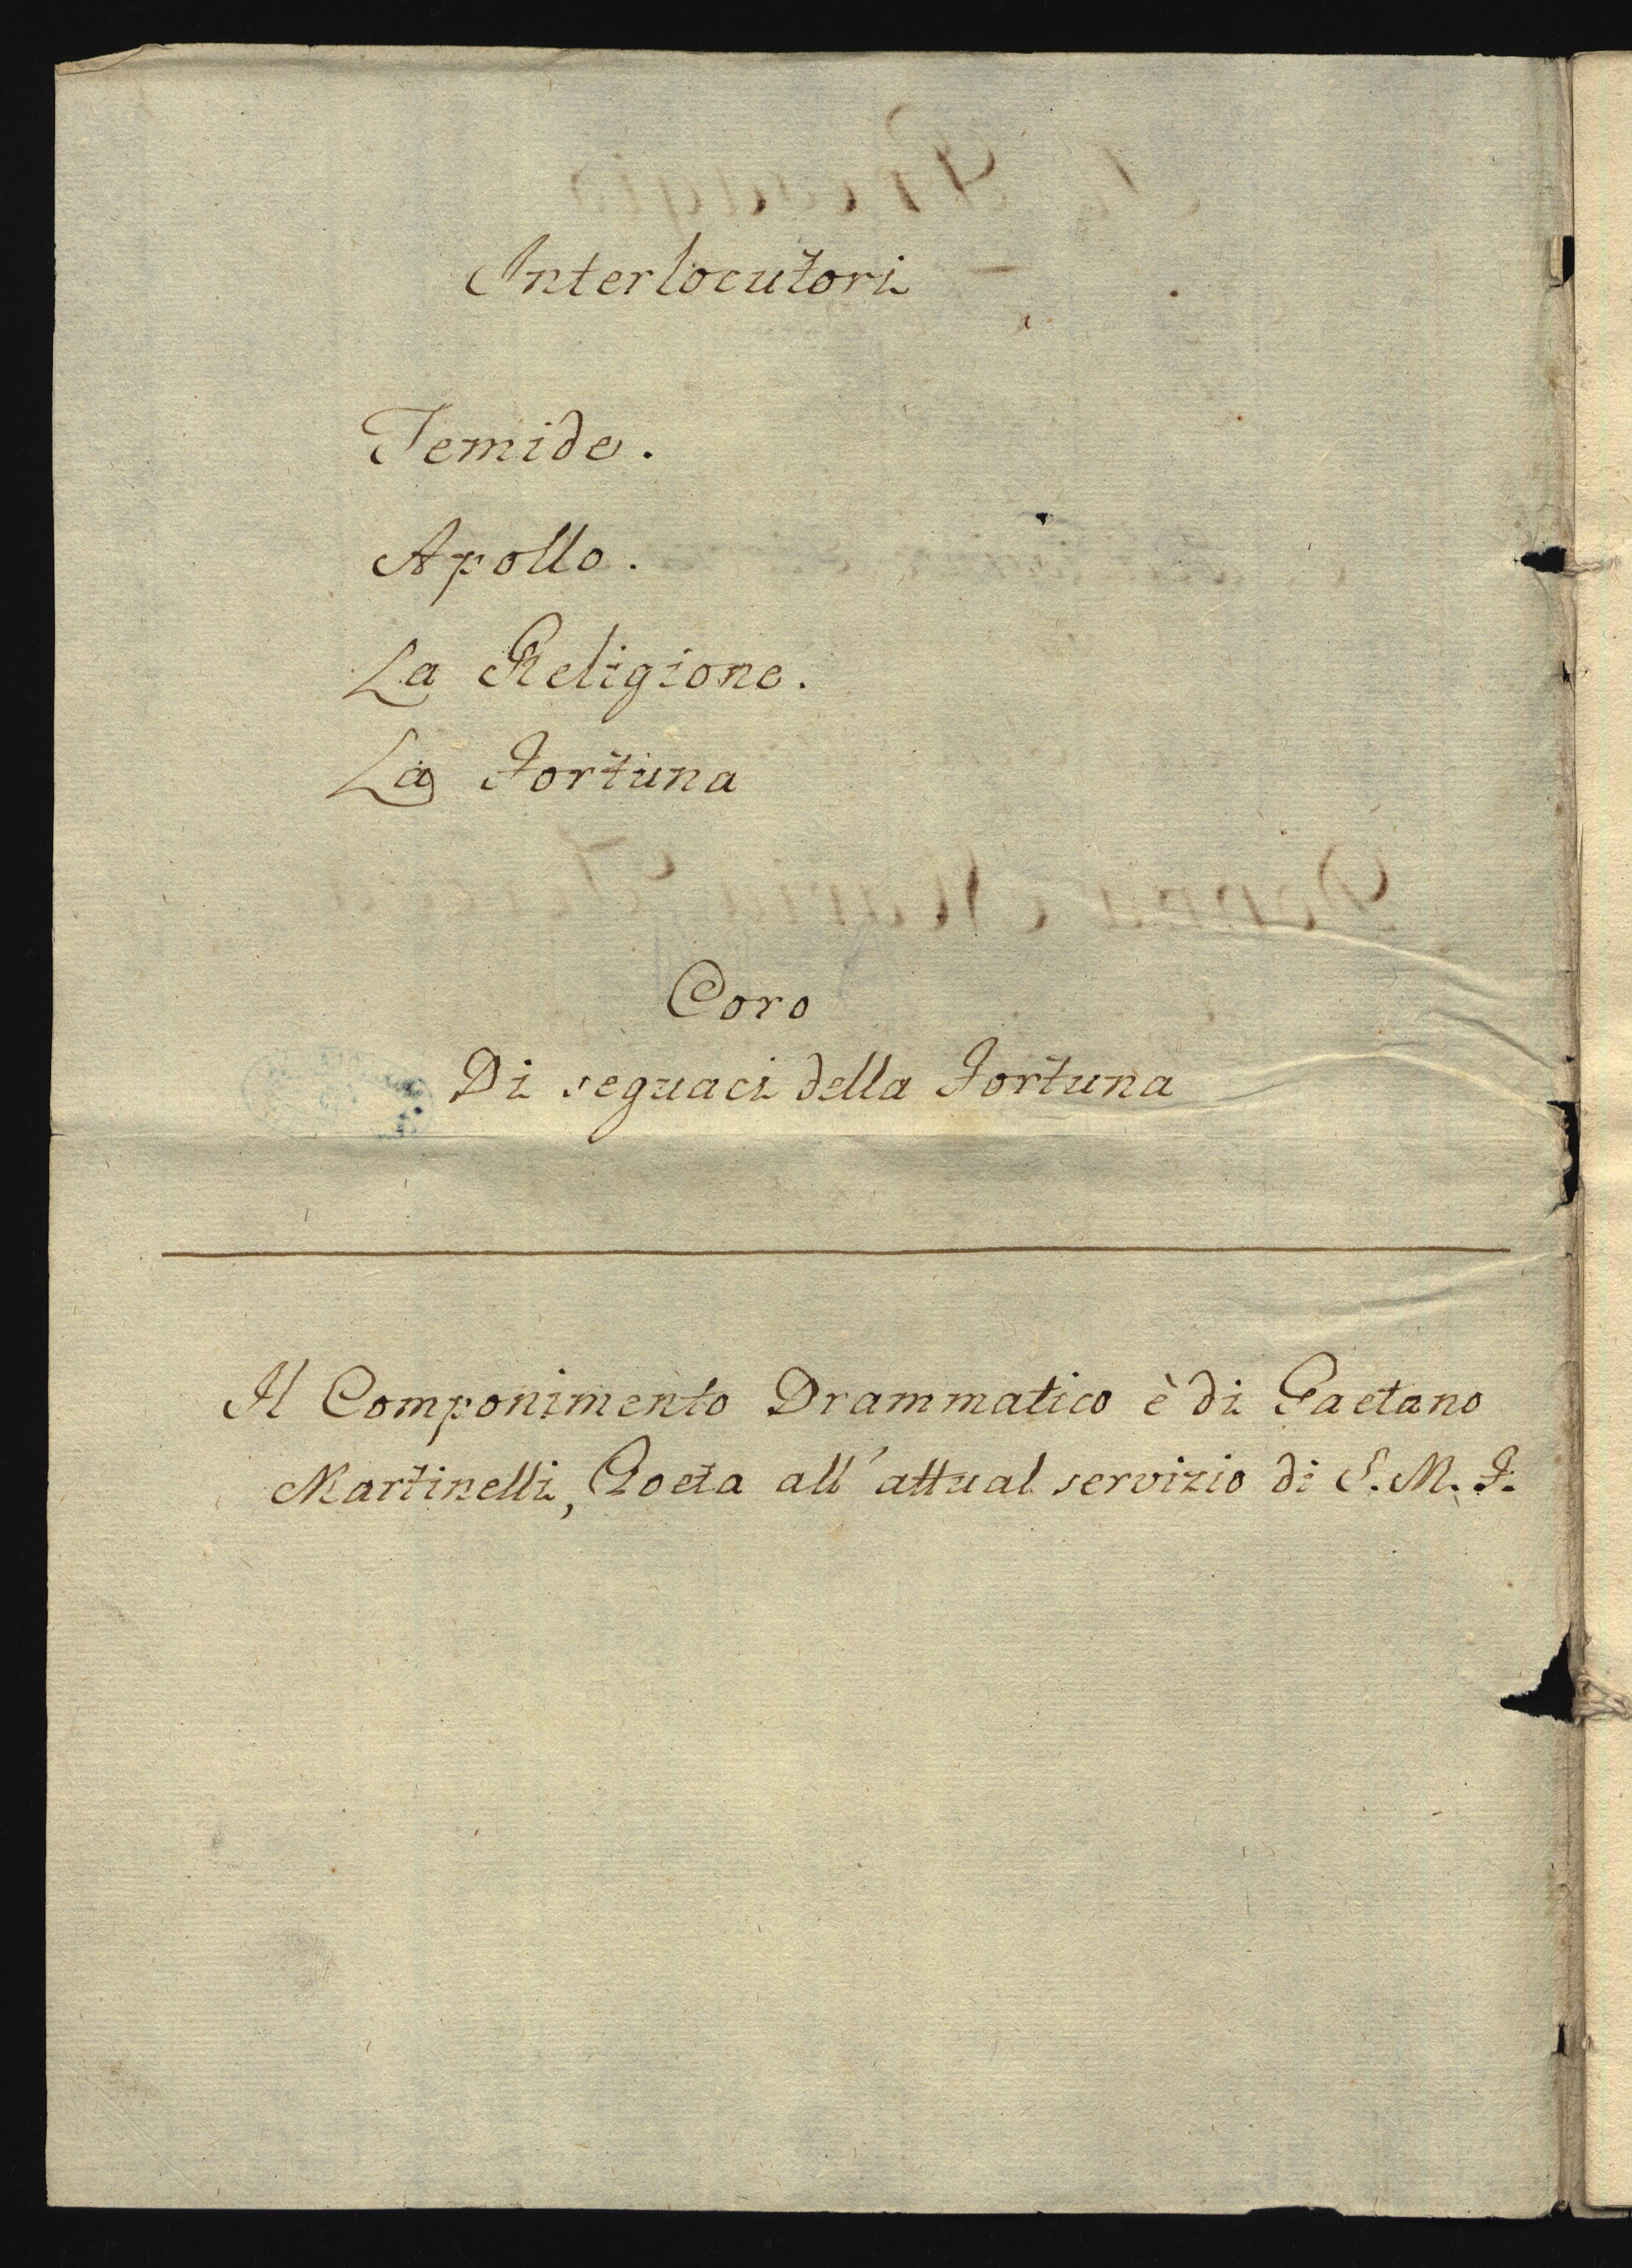 Interlocutori
Temide.
Apollo.
La Religione.
La Fortuna
Coro
Di seguaci della Fortuna
Il Componimento Drammatico è di Gaetano
Martinelli, Poeta all'attual servizio di S. M. F.